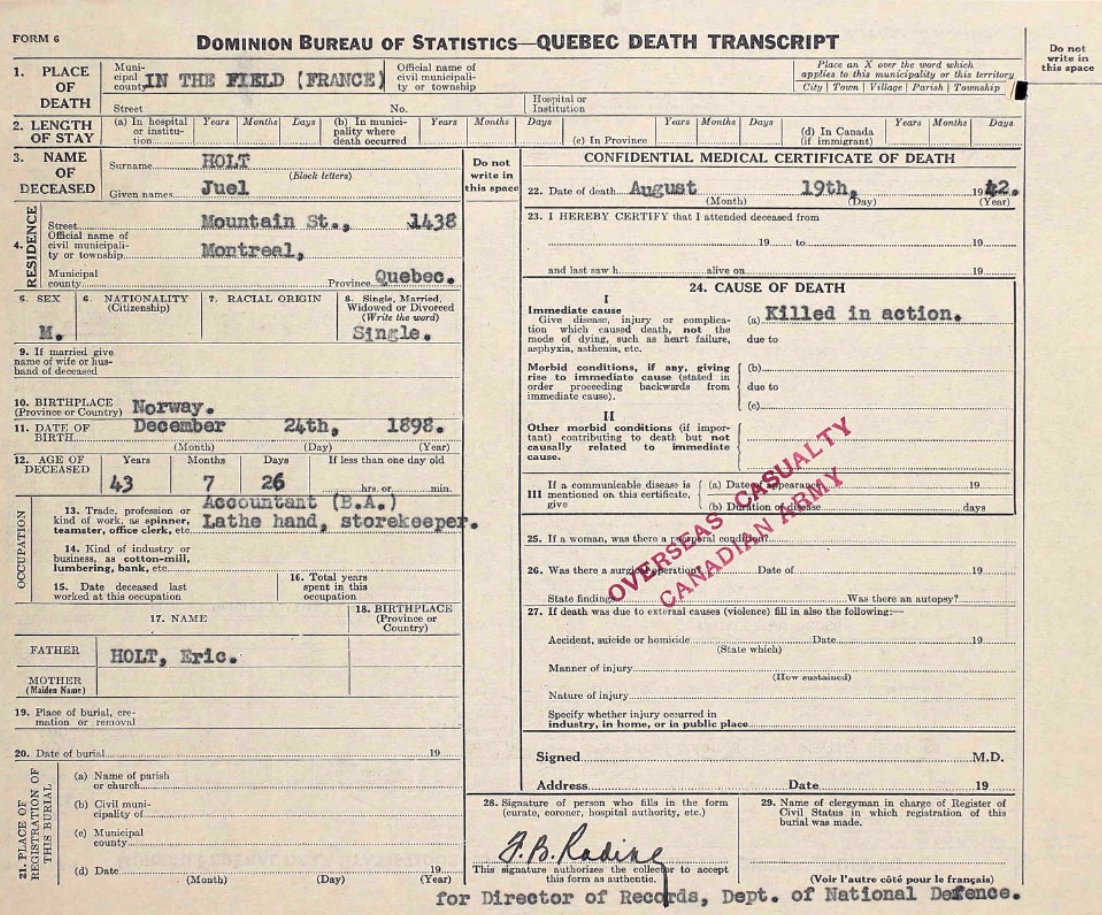 FORM 6
DOMINION BUREAU OF STATISTICS—QUEBEC DEATH TRANSCRIPT
Do not write in this space
1. PLACE OF DEATH
Municipal county IN THE FIELD (FRANCE)
Official name of civil municipality or township
Place an X over the word which applies to this municipality or this territory
City | Town | Village | Parish | Township
Street No.
Hospital or Institution
2. LENGTH OF STAY
(a) In hospital or institution Years Months Days
(b) In municipality where death occurred Years Months Days
(c) In Province Years Months Days
(d) In Canada (if immigrant) Years Months Days
3. NAME OF DECEASED
Surname HOLT
(Block letters)
Given names Juel
Do not write in this space
4. RESIDENCE
Street Mountain St., 1438
Official name of civil municipality or township Montreal,
Municipal county Province Quebec.
5. SEX M.
6. NATIONALITY (Citizenship)
7. RACIAL ORIGIN
8. Single, Married, Widowed or Divorced (Write the word) Single.
9. If married give name of wife or husband of deceased
10. BIRTHPLACE (Province or Country) Norway.
11. DATE OF BIRTH December 24th, 1898.
(Month) (Day) (Year)
12. AGE OF DECEASED
Years Months Days If less than one day old
43 7 26 hrs. or min.
OCCUPATION
13. Trade, profession or kind of work, as spinner, teamster, office clerk, etc. Accountant (B.A.)
Lathe hand, storekeeper.
14. Kind of industry or business, as cotton-mill, lumbering, bank, etc.
15. Date deceased last worked at this occupation
16. Total years spent in this occupation
17. NAME
18. BIRTHPLACE (Province or Country)
FATHER HOLT, Eric.
MOTHER (Maiden Name)
19. Place of burial, cremation or removal
20. Date of burial 19
21. PLACE OF REGISTRATION OF THIS BURIAL
(a) Name of parish or church
(b) Civil municipality of
(c) Municipal county
(d) Date 19
(Month) (Day) (Year)
CONFIDENTIAL MEDICAL CERTIFICATE OF DEATH
22. Date of death August 19th, 1942.
(Month) (Day) (Year)
23. I HEREBY CERTIFY that I attended deceased from
19 to 19
and last saw h alive on 19
24. CAUSE OF DEATH
I
Immediate cause
Give disease, injury or complication which caused death, not the mode of dying, such as heart failure, asphyxia, asthenia, etc.
(a) Killed in action.
due to
Morbid conditions, if any, giving rise to immediate cause (stated in order proceeding backwards from immediate cause).
(b)
due to
(c)
II
Other morbid conditions (if important) contributing to death but not causally related to immediate cause.
III If a communicable disease is mentioned on this certificate, give
(a) Date of appearance 19
(b) Duration of disease days
OVERSEAS CASUALTY
CANADIAN ARMY
25. If a woman, was there a puerperal condition?
26. Was there a surgical operation? Date of 19
State findings Was there an autopsy?
27. If death was due to external causes (violence) fill in also the following:—
Accident, suicide or homicide Date 19
(State which)
Manner of injury
(How sustained)
Nature of injury
Specify whether injury occurred in industry, in home, or in public place
Signed M.D.
Address Date 19
28. Signature of person who fills in the form (curate, coroner, hospital authority, etc.)
This signature authorizes the collector to accept this form as authentic.
29. Name of clergyman in charge of Register of Civil Status in which registration of this burial was made.
(Voir l'autre côté pour le français)
for Director of Records, Dept. of National Defence.